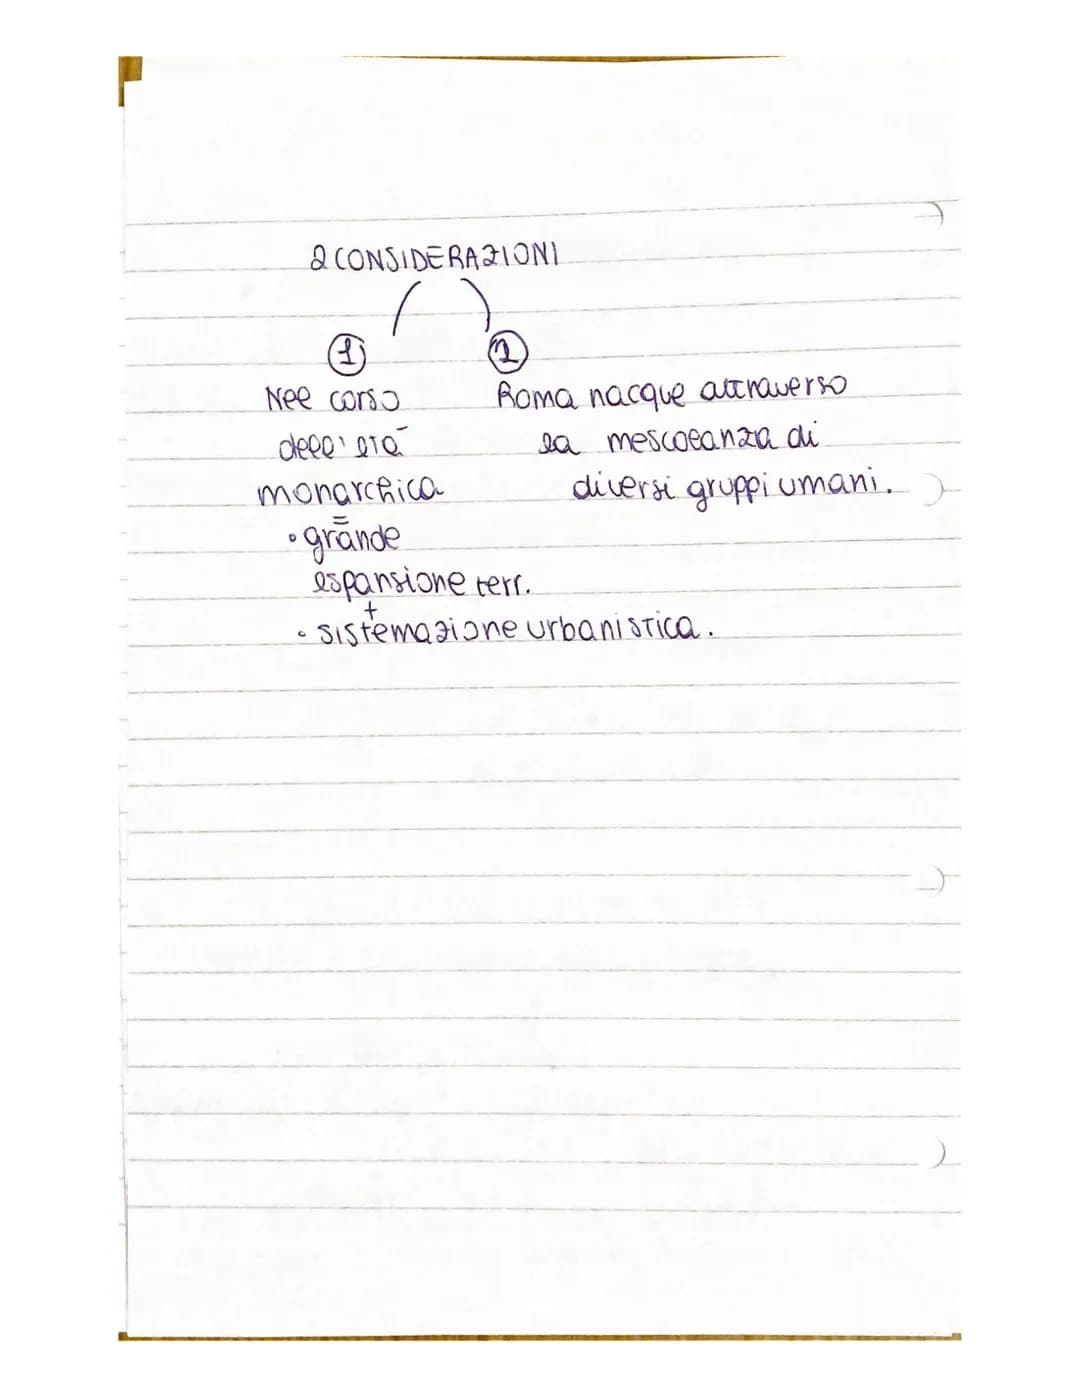 2 CONSIDERAZIONI
1
Nel corso
dell'età
monarchica
=
• grande
espansione terr.
+
• sistemazione urbanistica.
2
Roma nacque attraverso
la mescolanza di
diversi gruppi umani.